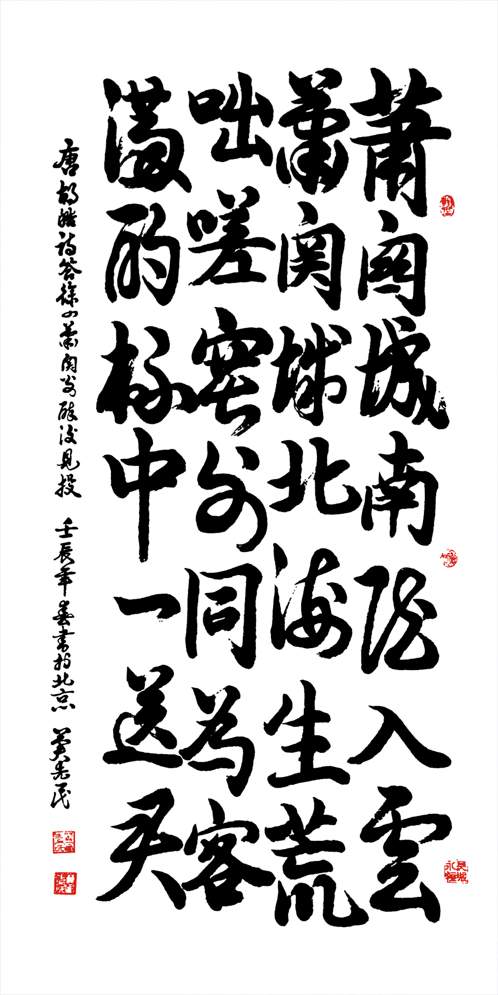 蕭關城南隴入雲
蕭関城北海生荒
咄嗟塞外同為客
滿酌杯中一送君
唐胡皓诗答徐四蕭関别醉後見投 壬辰年春書於北京